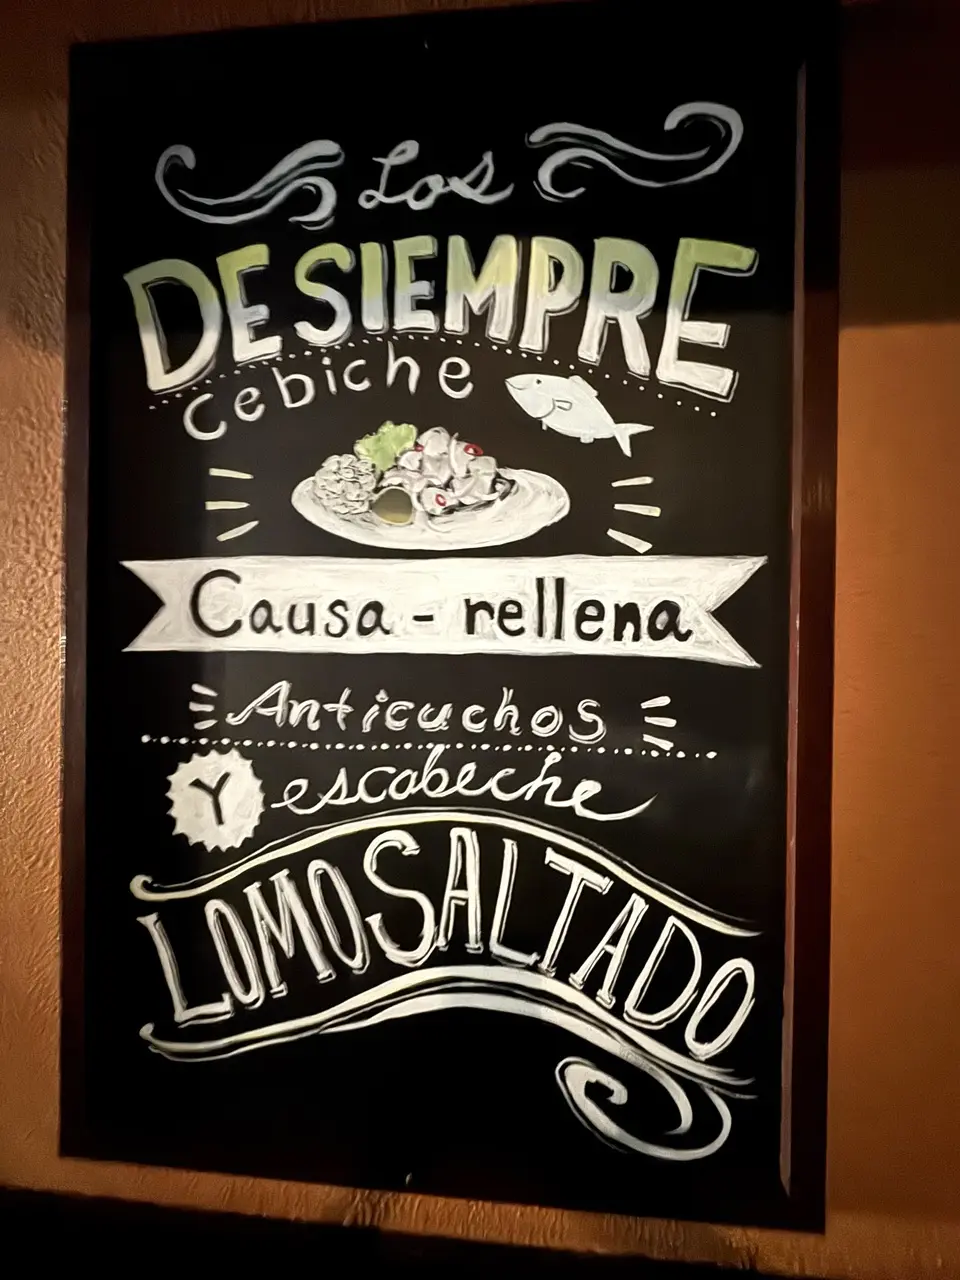 Los
DE SIEMPRE
cebiche
Causa - rellena
Anticuchos
Y escabeche
LOMO SALTADO